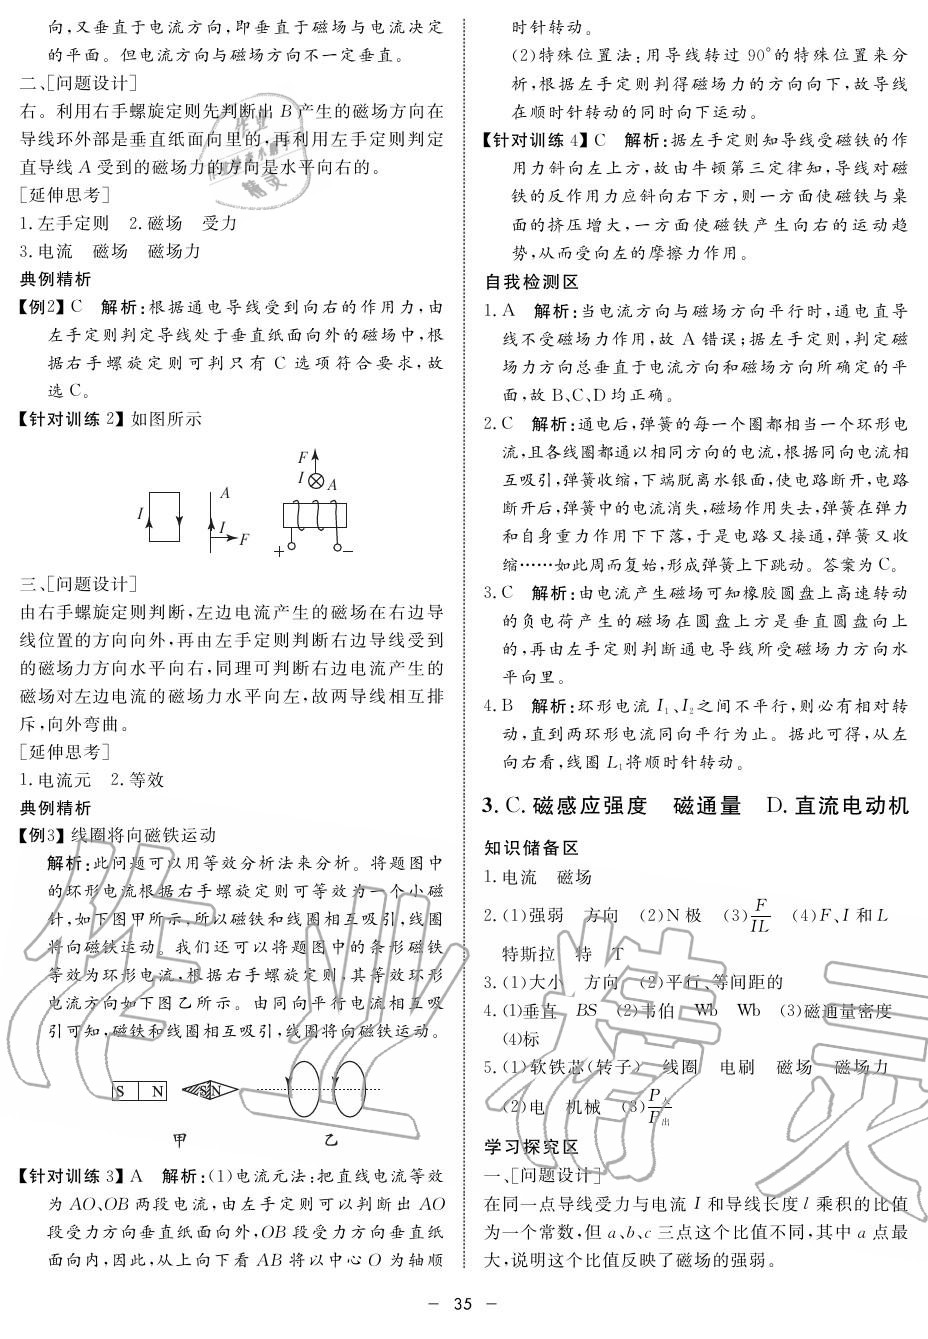 向,又垂直于电流方向,即垂直于磁场与电流决定
的平面。但电流方向与磁场方向不一定垂直。
二、[问题设计]
右。利用右手螺旋定则先判断出 B 产生的磁场方向在
导线环外部是垂直纸面向里的,再利用左手定则判定
直导线 A 受到的磁场力的方向是水平向右的。
[延伸思考]
1.左手定则 2.磁场 受力
3.电流 磁场 磁场力
典例精析
【例2】C 解析:根据通电导线受到向右的作用力,由
左手定则判定导线处于垂直纸面向外的磁场中,根
据右手螺旋定则可判只有 C 选项符合要求,故
选 C。
【针对训练 2】如图所示
I A I F
F I A + −
三、[问题设计]
由右手螺旋定则判断,左边电流产生的磁场在右边导
线位置的方向向外,再由左手定则判断右边导线受到
的磁场力方向水平向右,同理可判断右边电流产生的
磁场对左边电流的磁场力水平向左,故两导线相互排
斥,向外弯曲。
[延伸思考]
1.电流元 2.等效
典例精析
【例3】线圈将向磁铁运动
解析:此问题可以用等效分析法来分析。将题图中
的环形电流根据右手螺旋定则可等效为一个小磁
针,如下图甲所示,所以磁铁和线圈相互吸引,线圈
将向磁铁运动。我们还可以将题图中的条形磁铁
等效为环形电流,根据右手螺旋定则,其等效环形
电流方向如下图乙所示。由同向平行电流相互吸
引可知,磁铁和线圈相互吸引,线圈将向磁铁运动。
S N S N
甲 乙
【针对训练 3】A 解析:(1)电流元法:把直线电流等效
为 AO、OB 两段电流,由左手定则可以判断出 AO
段受力方向垂直纸面向外,OB 段受力方向垂直纸
面向内,因此,从上向下看 AB 将以中心 O 为轴顺
时针转动。
(2)特殊位置法:用导线转过 90°的特殊位置来分
析,根据左手定则判得磁场力的方向向下,故导线
在顺时针转动的同时向下运动。
【针对训练 4】C 解析:据左手定则知导线受磁铁的作
用力斜向左上方,故由牛顿第三定律知,导线对磁
铁的反作用力应斜向右下方,则一方面使磁铁与桌
面的挤压增大,一方面使磁铁产生向右的运动趋
势,从而受向左的摩擦力作用。
自我检测区
1.A 解析:当电流方向与磁场方向平行时,通电直导
线不受磁场力作用,故 A 错误;据左手定则,判定磁
场力方向总垂直于电流方向和磁场方向所确定的平
面,故 B、C、D 均正确。
2.C 解析:通电后,弹簧的每一个圈都相当一个环形电
流,且各线圈都通以相同方向的电流,根据同向电流相
互吸引,弹簧收缩,下端脱离水银面,使电路断开,电路
断开后,弹簧中的电流消失,磁场作用失去,弹簧在弹力
和自身重力作用下下落,于是电路又接通,弹簧又收
缩……如此周而复始,形成弹簧上下跳动。答案为 C。
3.C 解析:由电流产生磁场可知橡胶圆盘上高速转动
的负电荷产生的磁场在圆盘上方是垂直圆盘向上
的,再由左手定则判断通电导线所受磁场力方向水
平向里。
4.B 解析:环形电流 I₁、I₂之间不平行,则必有相对转
动,直到两环形电流同向平行为止。据此可得,从左
向右看,线圈 L₁将顺时针转动。
3.C.磁感应强度 磁通量 D.直流电动机
知识储备区
1.电流 磁场
2.(1)强弱 方向 (2)N 极 (3)F/IL (4)F、I 和 L
特斯拉 特 T
3.(1)大小 方向 (2)平行、等间距的
4.(1)垂直 BS (2)韦伯 Wb Wb (3)磁通量密度
(4)标
5.(1)软铁芯(转子) 线圈 电刷 磁场 磁场力
(2)电 机械 (3)
学习探究区
一、[问题设计]
在同一点导线受力与电流 I 和导线长度 l 乘积的比值
为一个常数,但 a、b、c 三点这个比值不同,其中 a 点最
大,说明这个比值反映了磁场的强弱。
− 35 −
作业精灵